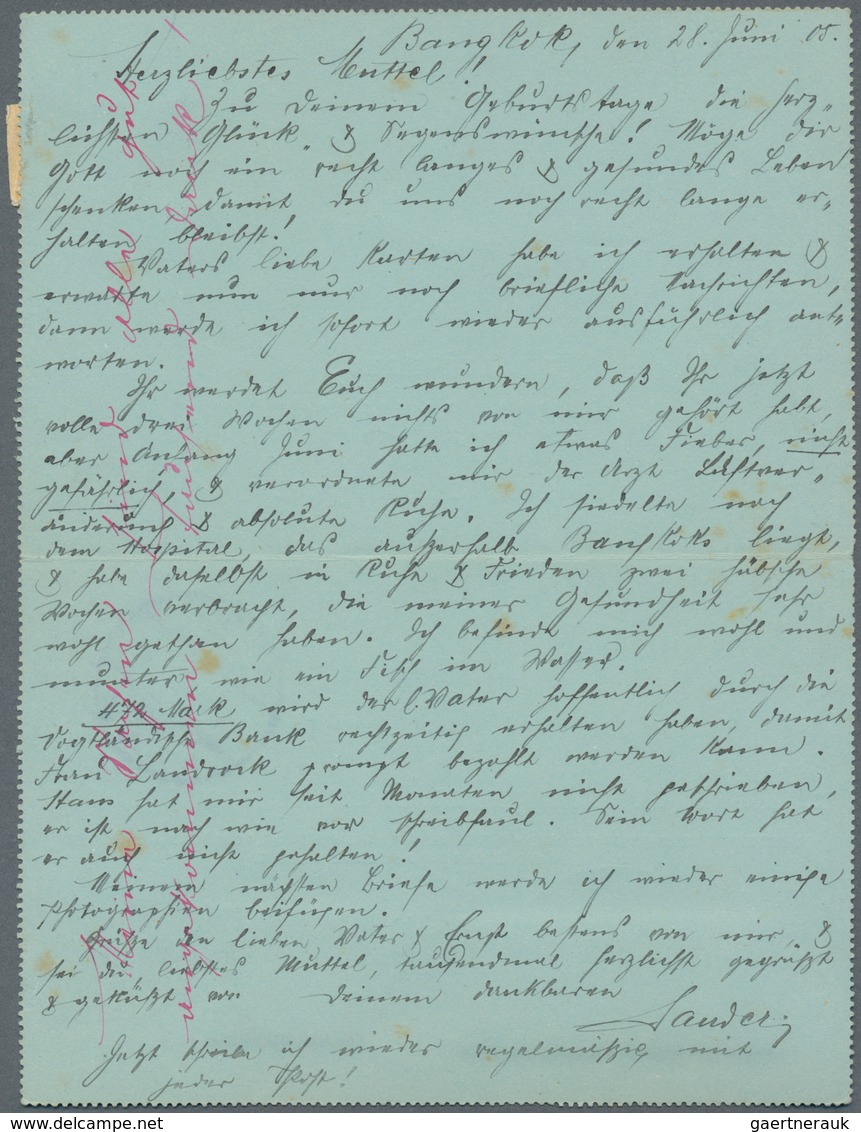 Bangkok, den 28. Juni 05.
Herzliebstes Muttel!
Zu Deinem Geburtstage die herz-
lichsten Glück & Segenswünsche! Möge dir
Gott noch ein recht langes & gesundes Leben
schenken, damit du uns noch recht lange er-
halten bleibst!
Vaters liebe Karten habe ich erhalten &
erwarte nun nur noch briefliche Nachrichten,
dann werde ich sofort wieder ausführlich ant-
worten.
Ihr werdet Euch wundern, daß Ihr jetzt
volle drei Wochen nichts von mir gehört habt,
aber Anfang Juni hatte ich etwas Fieber, nicht
gefährlich, & verordnete mir der Arzt Luftver-
änderung & absolute Ruhe. Ich siedelte nach
dem Hospital, das außerhalb Bangkoks liegt,
& habe daselbst in Ruhe & Frieden zwei hübsche
Wochen verbracht, die meiner Gesundheit sehr
wohl gethan haben. Ich befinde mich wohl und
munter wie ein Fisch im Wasser.
472 Mark wird der l. Vater hoffentlich durch die
Vogtländische Bank rechtzeitig erhalten haben, damit
Frau Landrock prompt bezahlt werden kann.
Hans hat mir seit Monaten nicht geschrieben,
er ist nach wie vor schreibfaul. Sein Wort hat
er auch nicht gehalten!
Meinem nächsten Briefe werde ich wieder einige
Photographien beifügen.
Grüße den lieben Vater & Ernst bestens von mir &
sei du, liebstes Muttel, tausendmal herzlichst gegrüßt
& geküßt von Deinem dankbaren
Sander.
Jetzt schreibe ich wieder regelmäßig mit
jeder Post!
sind alle gut
angekommen
Dank!